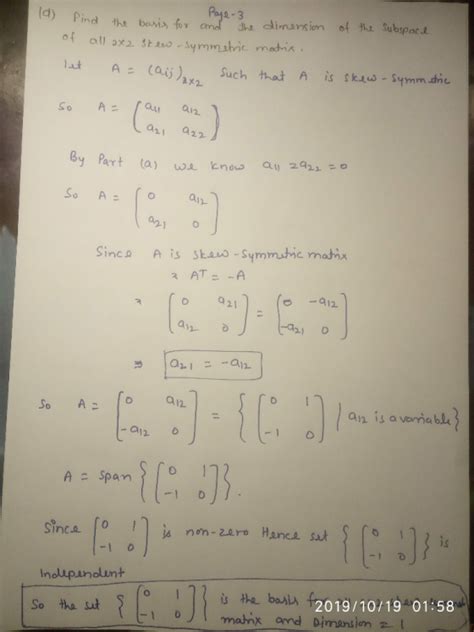 Page-3
(d) Find the basis for and the dimension of the subspace
of all 2x2 skew-symmetric matrix.
let A = (aij)2x2 such that A is skew-symmetric
So A = ( a11 a12
a21 a22 )
By Part (a) we know a11 = a22 = 0
So A = ( 0 a12
a21 0 )
Since A is skew-symmetric matrix
⇒ AT = -A
⇒ ( 0 a21
a12 0 ) = ( 0 -a12
-a21 0 )
⇒ a21 = -a12
So A = [ 0 a12
-a12 0 ] = { ( 0 1
-1 0 ) | a12 is a variable }
A = span { [ 0 1
-1 0 ] }.
Since [ 0 1
-1 0 ] is non-zero Hence set { [ 0 1
-1 0 ] } is
Independent
So the set { [ 0 1
-1 0 ] } is the basis for
matrix and Dimension = 1
2019/10/19 01:58